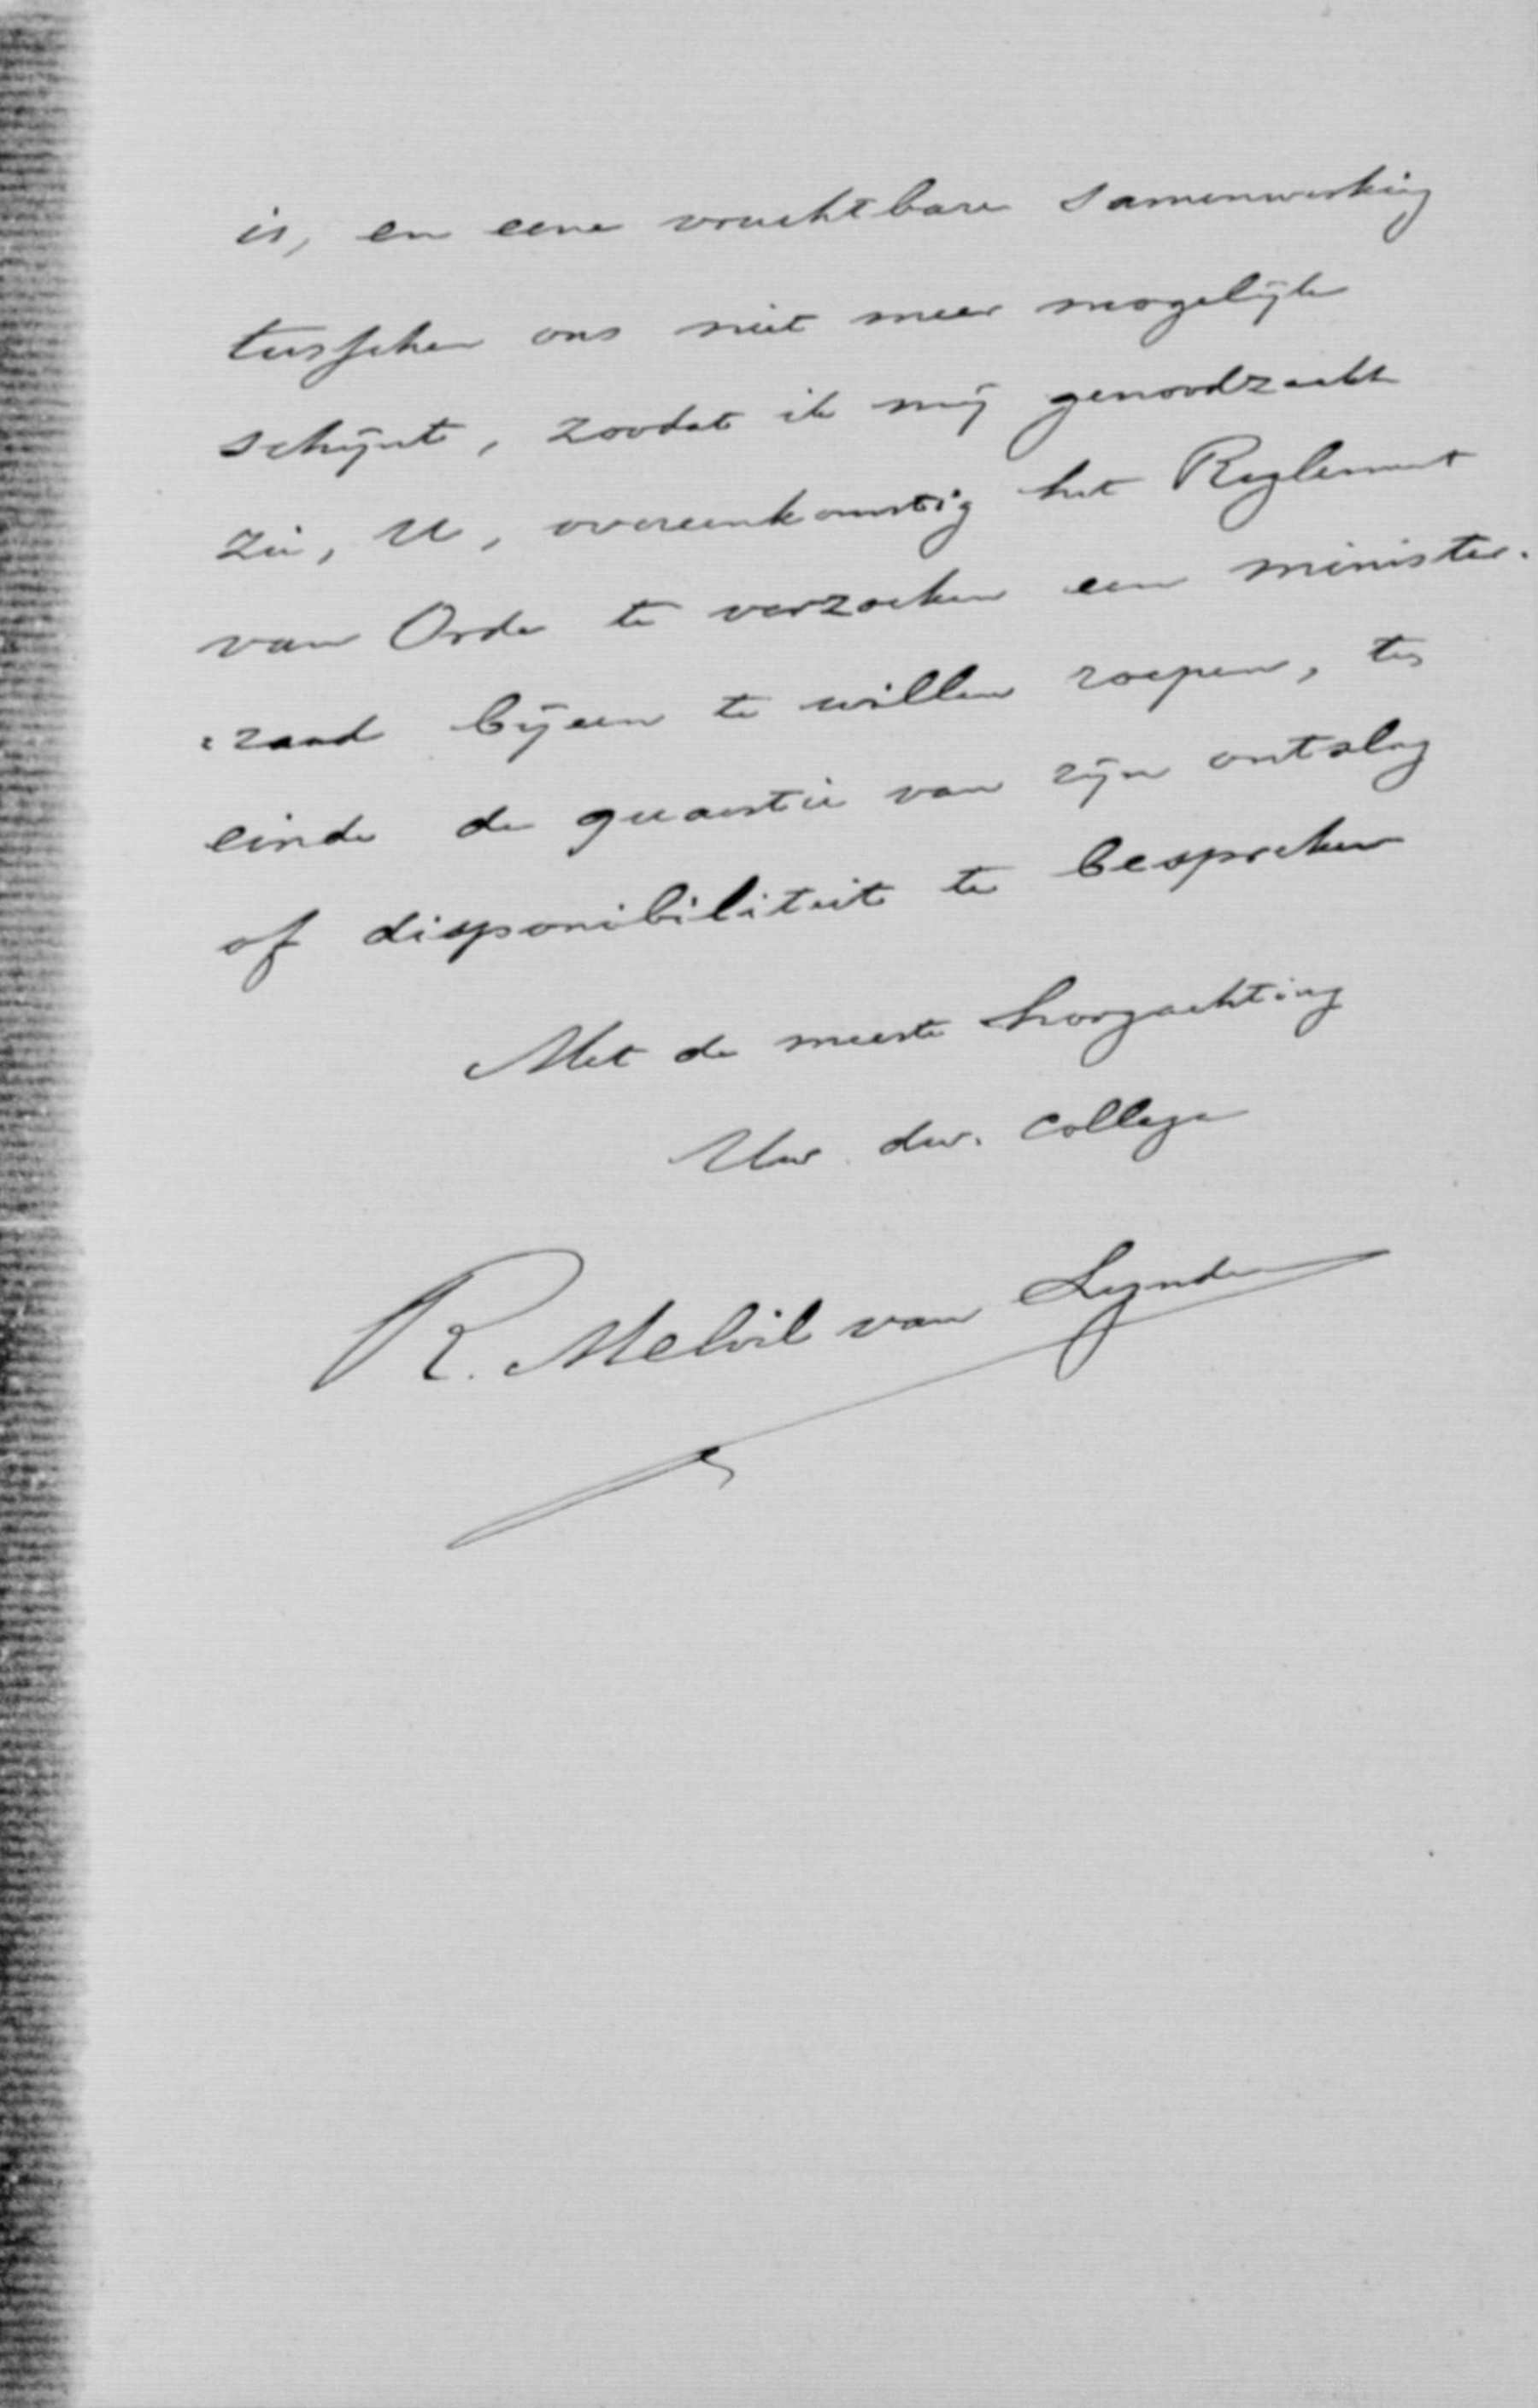 is, en eene vruchtbare samenwerking
tusschen ons niet meer mogelijk
schijnt, zoodat ik mij genoodzaakt
zie, U, overeenkomstig het Reglement
van Orde te verzoeken een minister-
raad bijeen te willen roepen, ten
einde de quaestie van zijn ontslag
of disponibiliteit te bespreken
Met de meeste hoogachting
Uw dw. Collega
R. Melvil van Lynden